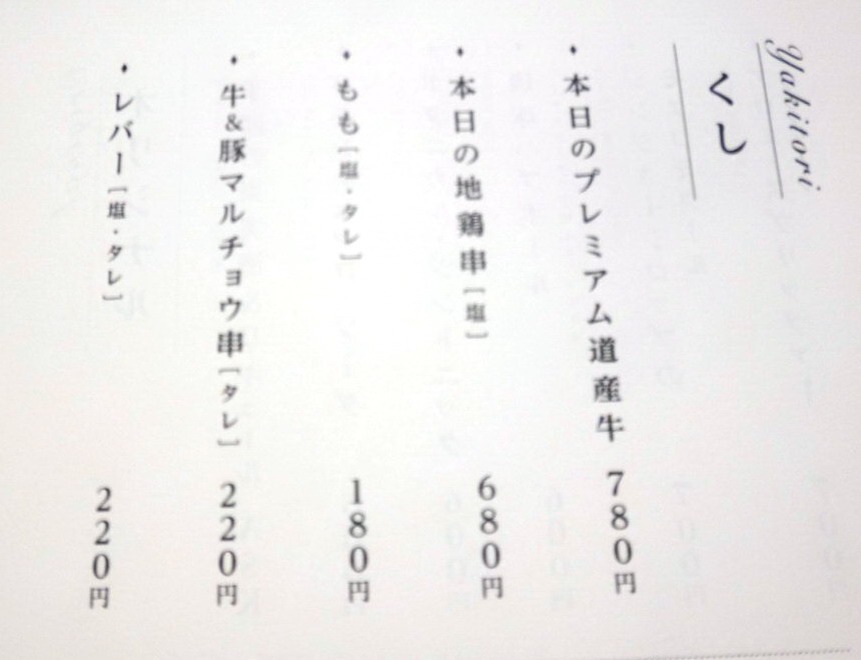 Yakitori
くし
本日のプレミアム道産牛 780円
本日の地鶏串[塩] 680円
もも[塩・タレ] 180円
牛&豚マルチョウ串[タレ] 220円
レバー[塩・タレ] 220円